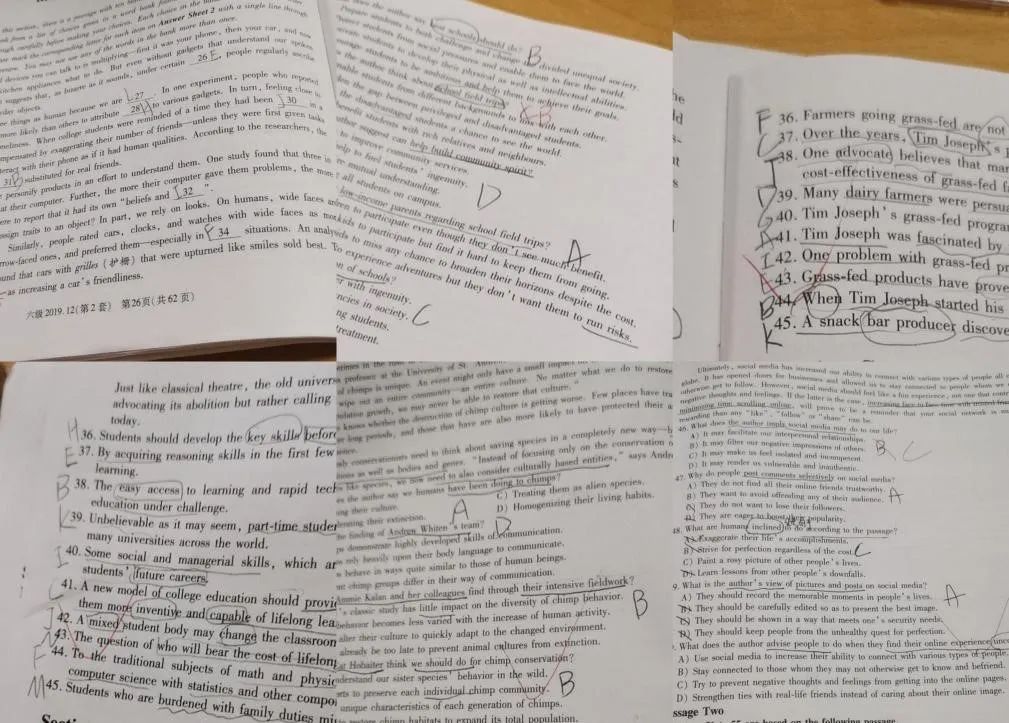 section, there is a passage with ten
Answer Sheet 2 with a single line through
the words in the bank more than once.
devices you can talk to is multiplying—first it was your phone, then your car, and now
kitchen appliances what to do. But even without gadgets that understand our spoken
suggests that, as bizarre as it sounds, under certain 26 , people regularly ascribe
day objects.
things as human because we are 27 . In one experiment, people who reported
more likely than others to attribute 28 to various gadgets. In turn, feeling close to
loneliness. When college students were reminded of a time they had been 30 in a
compensated by exaggerating their number of friends—unless they were first given tasks
interact with their phone as if it had human qualities. According to the researchers, the
31 substituted for real friends.
personify products in an effort to understand them. One study found that three in
at their computer. Further, the more their computer gave them problems, the more
to report that it had its own "beliefs and 32 ".
assign traits to an object? In part, we rely on looks. On humans, wide faces
Similarly, people rated cars, clocks, and watches with wide faces as more
narrow-faced ones, and preferred them—especially in 34 situations. An analysis
found that cars with grilles (护栅) that were upturned like smiles sold best. To
as increasing a car's friendliness.
六级 2019.12(第2套) 第26页(共62页)
does the author say schools should do? B
Prepare students to both challenge and change the divided unequal society.
students from social pressures and enable them to face the world.
students to develop their physical as well as intellectual abilities.
students to be ambitious and help them to achieve their goals.
the author think about school field trips?
enable students from different backgrounds to with each other.
the gap between privileged and disadvantaged students.
the disadvantaged students a chance to see the world.
benefit students with rich relatives and neighbours.
author suggest can help build community spirit?
to improve community services.
help to fuel students' ingenuity. D
mutual understanding.
all students on campus.
low-income parents regarding school field trips? A
children to participate even though they don't see much benefit.
kids to participate but find it hard to keep them from going.
to miss any chance to broaden their horizons despite the cost.
experience adventures but they don't want them to run risks.
of schools?
with ingenuity.
in society. C
students.
treatment.
F 36. Farmers going grass-fed are not
37. Over the years, Tim Joseph's
38. One advocate believes that
cost-effectiveness of grass-fed
39. Many dairy farmers were persua
40. Tim Joseph's grass-fed progra
A 41. Tim Joseph was fascinated by
I 42. One problem with grass-fed pr
43. Grass-fed products have prove
B 44. When Tim Joseph started his
K 45. A snack bar producer discove
Just like classical theatre, the old univers
advocating its abolition but rather calling
today.
H 36. Students should develop the key skills before
E 37. By acquiring reasoning skills in the first few
learning.
B 38. The easy access to learning and rapid tech
education under challenge.
39. Unbelievable as it may seem, part-time studen
many universities across the world.
I 40. Some social and managerial skills, which ar
students' future careers.
41. A new model of college education should provid
them more inventive and capable of lifelong lea
J 42. A mixed student body may change the classroom
43. The question of who will bear the cost of lifelong
F 44. To the traditional subjects of math and physic
computer science with statistics and other compo
M 45. Students who are burdened with family duties
professor at the University of St
of chimps is unique. An event might only have a small impact
wipe out an entire community—an entire culture. No matter what we do to restore
population growth, we may never be able to restore that culture."
knows whether the destruction of chimp culture is getting worse. Few places have
long periods, and those that have are also more likely to have protected their
conservationists need to think about saving species in a completely new way—
as well as bodies and genes. "Instead of focusing only on the conservation
like species, we now need to also consider culturally based entities," says Andr
the author say we humans have been doing to chimps?
their culture. C) Treating them as alien species.
their extinction. A D) Homogenizing their living habits.
finding of Andrew Whiten's team? D
demonstrate highly developed skills of communication.
rely heavily upon their body language to communicate.
behave in ways quite similar to those of human beings.
chimp groups differ in their way of communication.
Ammie Kalan and her colleagues find through their intensive fieldwork?
's classic study has little impact on the diversity of chimp behavior.
behavior becomes less varied with the increase of human activity. B
alter their culture to quickly adapt to the changed environment.
already be too late to prevent animal cultures from extinction.
Hobaiter think we should do for chimp conservation?
understand our sister species' behavior in the wild.
to preserve each individual chimp community. B
unique characteristics of each generation of chimps.
chimp habitats to expand its total population.
Ultimately, social media has increased our ability to connect with various types of people all
globe. It has opened doors for businesses and allowed us to stay connected to people whom we
otherwise get to follow. However, social media should feel like a fun experience, not one that
negative thoughts and feelings. If the latter is the case, increasing face-to-face time with trusted
minimizing time scrolling online, will prove to be a reminder that your social network is
rewarding than any "like", "follow" or "share" can be.
46. What does the author imply social media may do to our life?
A) It may facilitate our interpersonal relationships.
B) It may filter our negative impressions of others. B C
C) It may make us feel isolated and incompetent.
D) It may render us vulnerable and inauthentic.
47. Why do people post comments selectively on social media?
A) They do not find all their online friends trustworthy.
B) They want to avoid offending any of their audience. A
C) They do not want to lose their followers.
D) They are eager to boost their popularity.
48. What are humans inclined to do according to the passage?
A) Exaggerate their life's accomplishments.
B) Strive for perfection regardless of the cost. C
C) Paint a rosy picture of other people's lives.
D) Learn lessons from other people's downfalls.
What is the author's view of pictures and posts on social media?
A) They should record the memorable moments in people's lives. A
B) They should be carefully edited so as to present the best image.
C) They should be shown in a way that meets one's security needs.
D) They should keep people from the unhealthy quest for perfection.
What does the author advise people to do when they find their online experience
A) Use social media to increase their ability to connect with various types of people.
B) Stay connected to those whom they may not otherwise get to know and befriend.
C) Try to prevent negative thoughts and feelings from getting into the online pages.
D) Strengthen ties with real-life friends instead of caring about their online image.
ssage Two